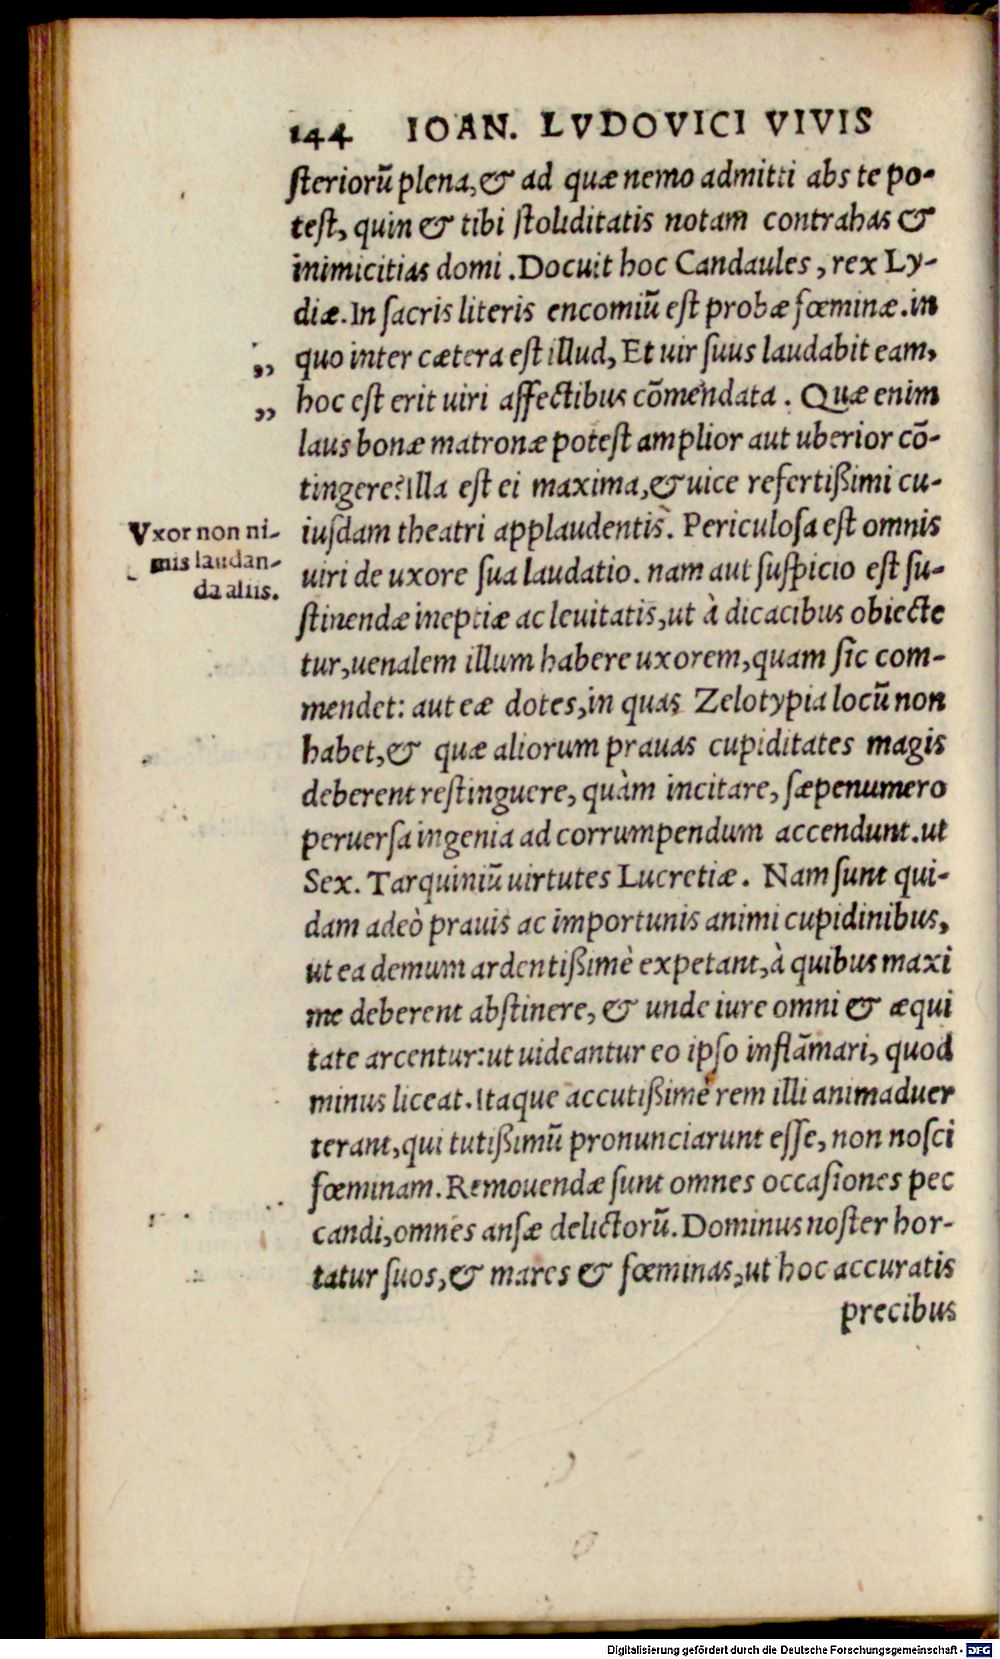 144 IOAN. LVDOVICI VIVIS
steriorũ plena, & ad quæ nemo admitti abs te po-
test, quin & tibi stoliditatis notam contrahas &
inimicitias domi. Docuit hoc Candaules, rex Ly-
diæ. In sacris literis encomiũ est probæ fœminæ. in
„ quo inter cætera est illud, Et uir suus laudabit eam,
„ hoc est erit uiri affectibus cõmendata. Quæ enim
laus bonæ matronæ potest amplior aut uberior cõ-
tingere? Illa est ei maxima, & uice refertißimi cu-
Vxor non ni-
mis laudan-
da aliis.
iusdam theatri applaudentis. Periculosa est omnis
uiri de uxore sua laudatio. nam aut suspicio est su-
stinendæ ineptiæ ac leuitatis, ut à dicacibus obiecte
tur, uenalem illum habere uxorem, quam sic com-
mendet: aut eæ dotes, in quas Zelotypia locũ non
habet, & quæ aliorum prauas cupiditates magis
deberent restinguere, quàm incitare, sæpenumero
peruersa ingenia ad corrumpendum accendunt. ut
Sex. Tarquiniũ uirtutes Lucretiæ. Nam sunt qui-
dam adeò prauis ac importunis animi cupidinibus,
ut ea demum ardentißimè expetant, à quibus maxi
me deberent abstinere, & unde iure omni & æqui
tate arcentur: ut uideantur eo ipso inflãmari, quod
minus liceat. Itaque accutißimè rem illi animaduer
terant, qui tutißimũ pronunciarunt esse, non nosci
fœminam. Remouendæ sunt omnes occasiones pec
candi, omnes ansæ delictorũ. Dominus noster hor-
tatur suos, & mares & fœminas, ut hoc accuratis
precibus
Digitalisierung gefördert durch die Deutsche Forschungsgemeinschaft - DFG